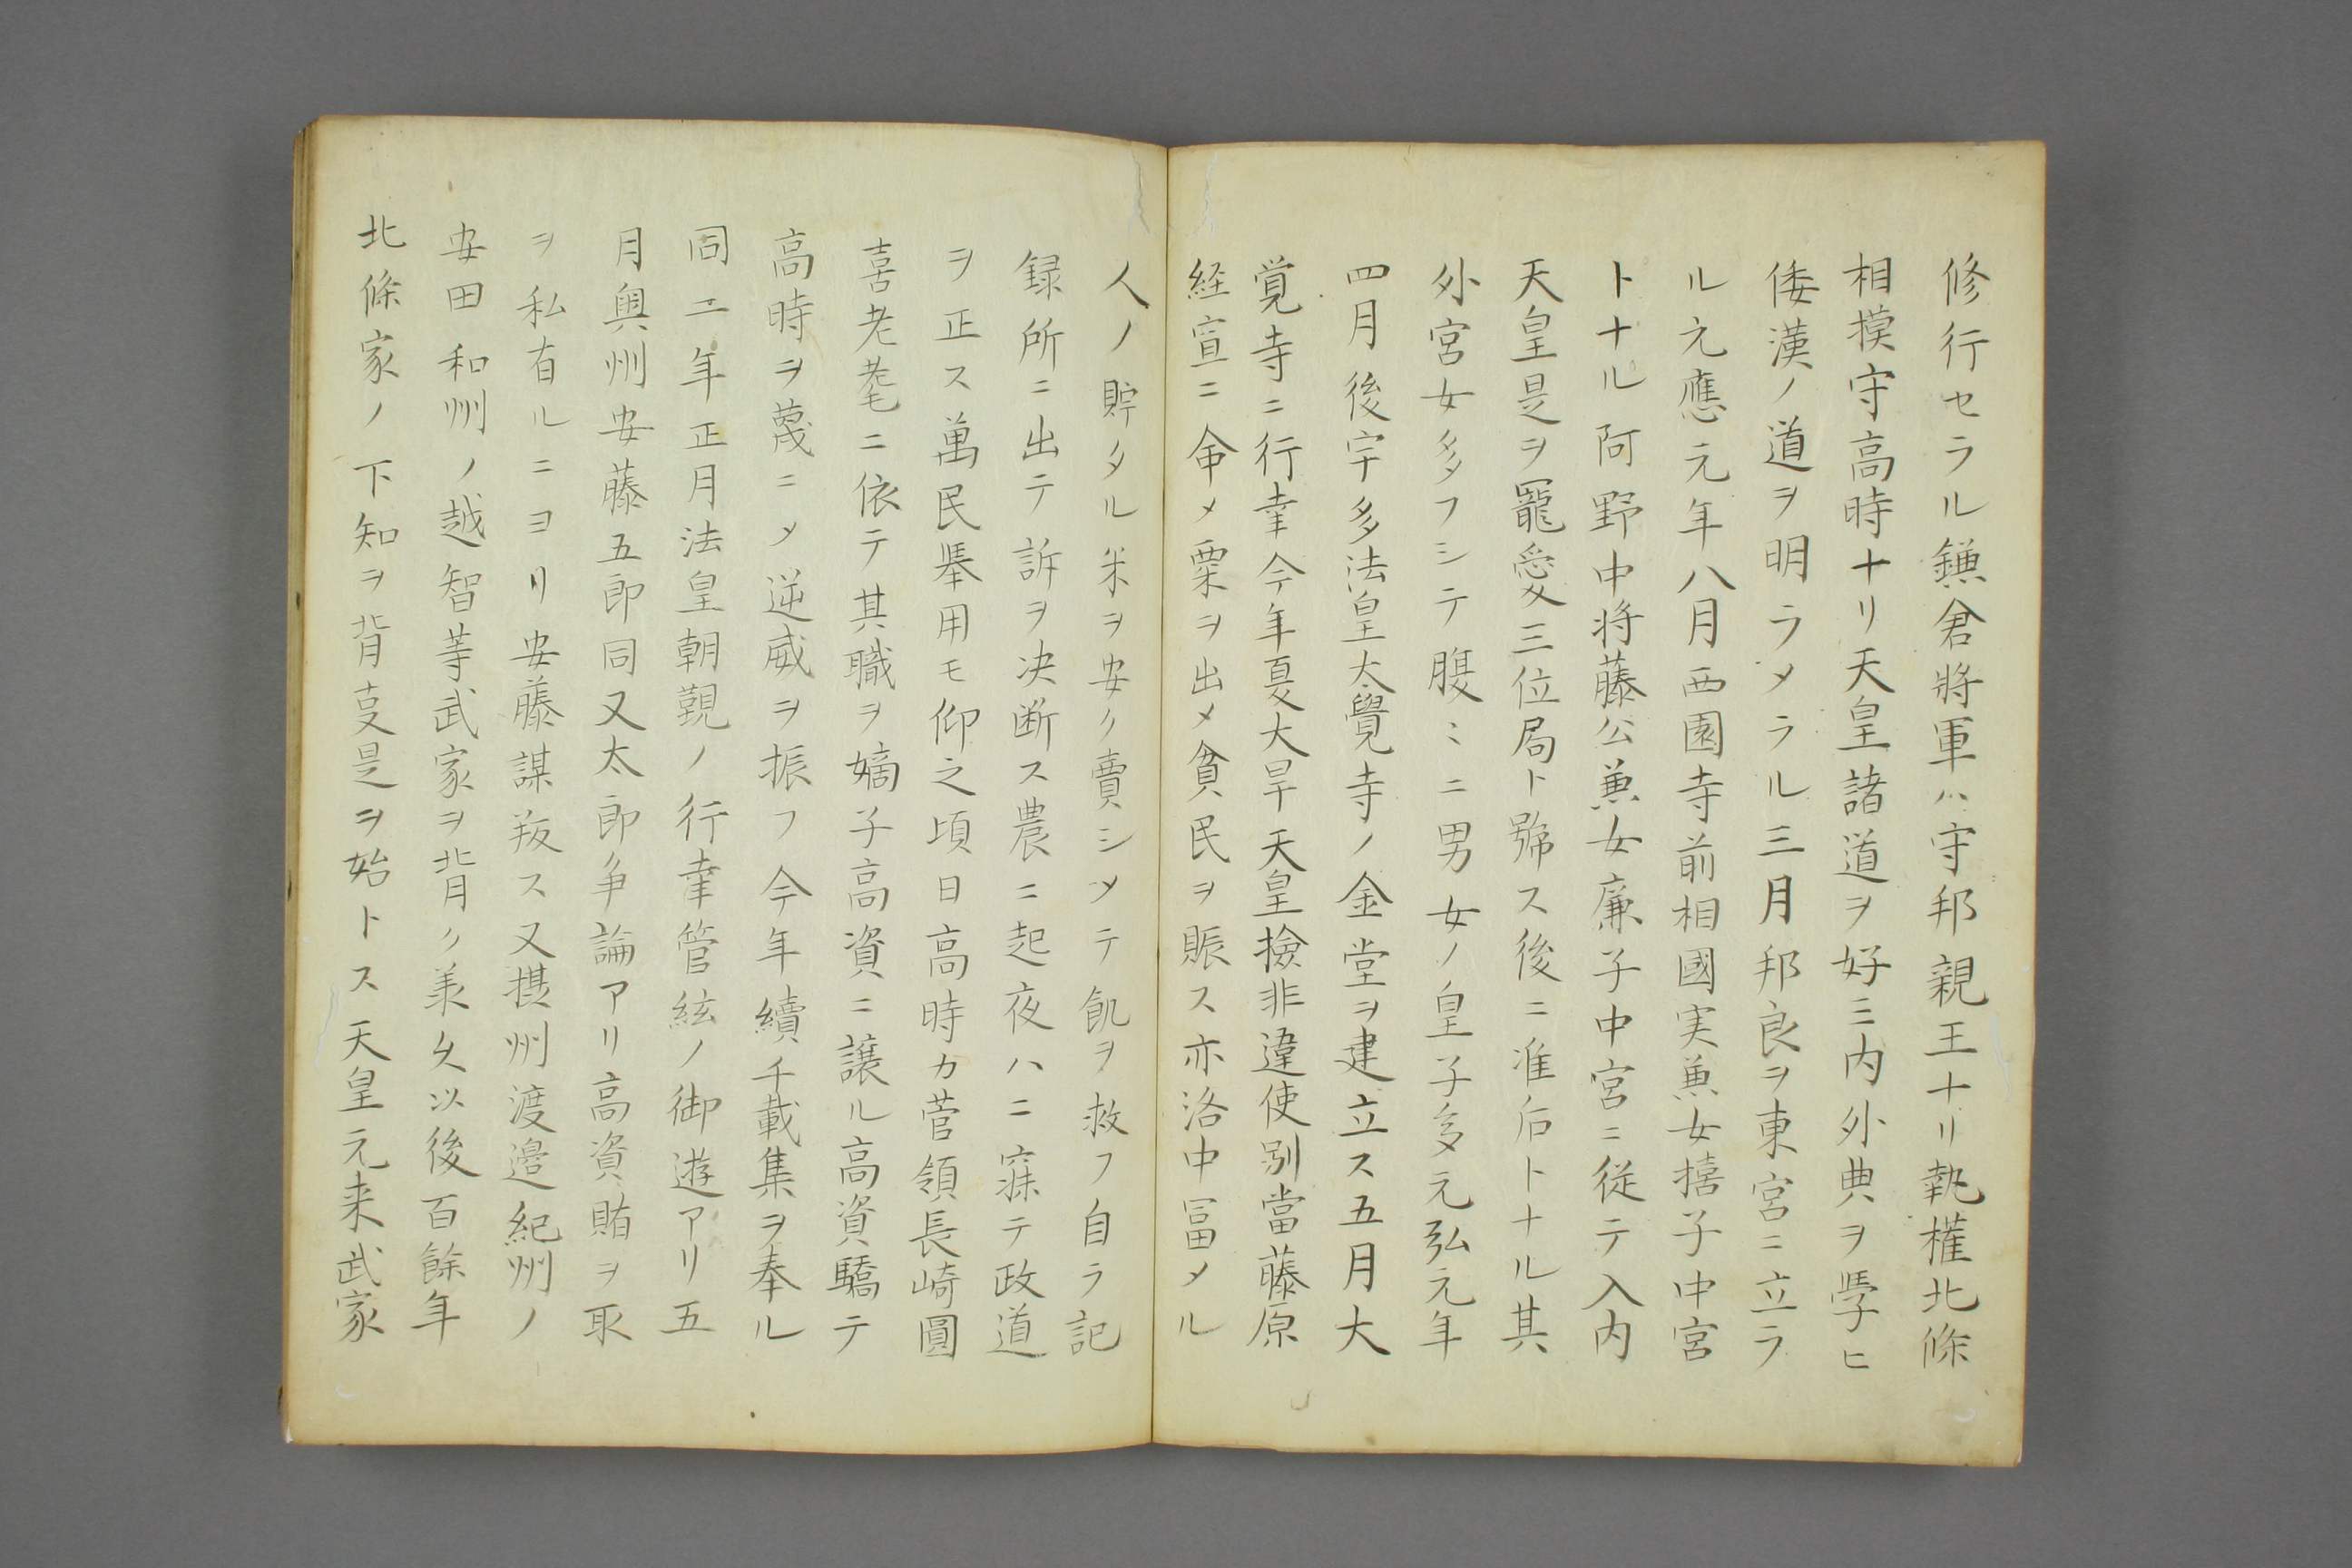 修行セラル鎌倉將軍ハ守邦親王ナリ執權北條
相摸守高時ナリ天皇諸道ヲ好ミ内外典ヲ學ヒ
倭漢ノ道ヲ明ラメラル三月邦良ヲ東宮ニ立ラ
ル元應元年八月西園寺前相國実兼女禧子中宮
トナル阿野中将藤公兼女廉子中宮ニ従テ入内
天皇是ヲ寵愛三位局ト號ス後ニ准后トナル其
外宮女多フシテ腹ミニ男女ノ皇子多元弘元年
四月後宇多法皇大覺寺ノ金堂ヲ建立ス五月大
覚寺ニ行幸今年夏大旱天皇撿非違使別當藤原
経宣ニ命メ粟ヲ出メ貧民ヲ賑ス亦洛中冨メル
人ノ貯タル米ヲ安ク賣シメテ飢ヲ救フ自ラ記
録所ニ出テ訴ヲ决断ス農ニ起夜ハニ寐テ政道
ヲ正ス萬民擧用モ仰之頃日高時カ菅領長崎圓
喜老耄ニ依テ其職ヲ嫡子高資ニ譲ル高資驕テ
高時ヲ蔑ニメ逆威ヲ振フ今年續千載集ヲ奉ル
同二年正月法皇朝覲ノ行幸管絃ノ御遊アリ五
月奥州安藤五郎同又太郎争論アリ高資賂ヲ取
ヲ私有ルニヨリ安藤謀叛ス又摂州渡邉紀州ノ
安田和州ノ越智等武家ヲ背ク羕久以後百餘年
北條家ノ下知ヲ背叓是ヲ始トス天皇元来武家